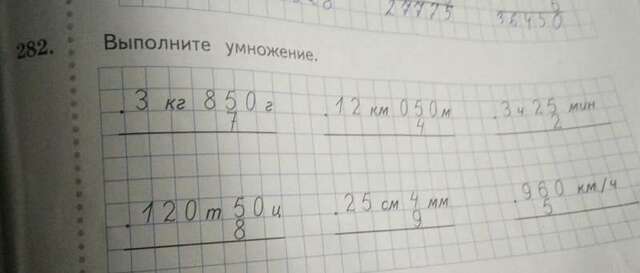 27775 36450
282. Выполните умножение.
. 3 кг 850 г . 12 км 050 м . 3 ч 25 мин
7 4 2
. 120 т 50 ц . 25 см 4 мм . 960 км/ч
8 9 5